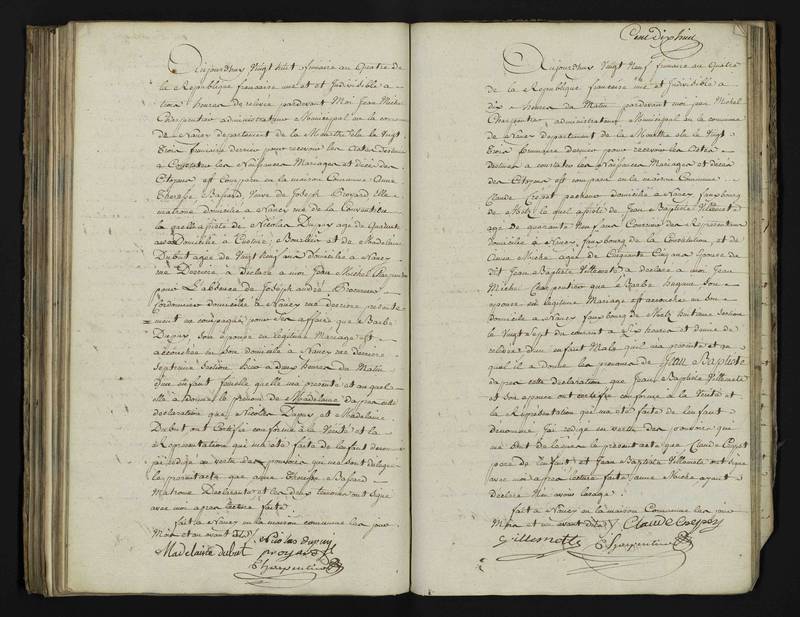 Aujourdhuy Vingt huit frimaire an Quatre de
la Republique francaise une et Indivisible a
trois heures de relevée pardevant Moi Jean Michel
Charpentier administrateur Municipal de la commune
de Nancy departement de la Meurthe élu le Vingt
trois frimaire dernier pour recevoir les actes destinés
a Constater les Naissances Mariages et décès des
Citoyens est comparu en la maison Commune Anne
Therese Bassard, Veuve de Joseph Proyard Elle
matrone domiciliée a Nancy rue de la Convention
laquelle assistée de Nicolas Dupuy age de Quarante
ans Domicilié a et de Madelaine
Dubut agée de Vingt Neuf ans domiciliée a Nancy
rue Derriere a déclaré a moi Jean Michel Charpentier
pour L'absence de Joseph andré
Cordonnier domicilié a Nancy rue derriere
pour Ses affaire que Barbe
Dupuy Son épouse en légitime Mariage est
accouchée en Son domicile a Nancy rue derriere
Septieme Section hier a deux heures du Matin
d'un enfant femelle quelle ma présenté et auquel
elle a donné le prénom de Madelaine dapres cette
déclaration que Nicolas Dupuy et Madelaine
Dubut ont Certifié conforme à la Vérité et la
Représentation qui m'a été faite de l'enfant denommé
jai rédigé en vertu des pouvoirs qui me sont délégués
le présent acte que anne Therese Bassard
Matrone Declarante et les deux temoins ont Signé
avec moi apres lecture faite
fait a Nancy en la maison commune les jour
Mois et an avant dits
Nicolas dupuy
Madelainne dubut proyard
Charpentier
Cent dix huit
Aujourdhuy Vingt Neuf frimaire an Quatre
de la Republique francaise une et Indivisible a
dix heures du Matin pardevant moi jean Michel
Charpentier, administrateur Municipal de la commune
de Nancy departement de la Meurthe élu le Vingt
trois frimaire dernier pour recevoir les actes
destinés a constater les Naissances Mariages et décès
des Citoyens est comparu en la maison Commune
Claude domicilié a Nancy fauxbourg
de Metz lequel assisté de Jean Baptiste Villemet
age de quarante Neuf ans
domicilié a Nancy fauxbourg de la Constitution, et de
Anne Miché agée de Cinquante Cinq ans épouse du
dit Jean Baptiste Villemet a déclaré a moi Jean
Michel Charpentier que Barbe Son
épouse en légitime Mariage est accouchée en Son
domicile a Nancy fauxbourg de Metz huitieme Section
le Vingt Sept du courant a Six heures et demie de
relévée d'un enfant Male qu'il ma présenté et au
quel il a donné les prénoms de Jean Baptiste
dapres cette déclaration que Jean Baptiste Villemet
et Son épouse ont certifié conforme a la Vérité et
la Représentation qui m'a été faite de l'enfant
dénommé jai rédigé en vertu des pouvoirs qui
me Sont délégués le présent acte que Claude
pere de l'enfant et Jean Baptiste Villemet ont Signé
avec moi apres lecture faite anne Miché ayant
déclaré Ne Savoir
fait a Nancy en la maison Commune les jour
Mois et an avant dits Claude
Villemette Charpentier